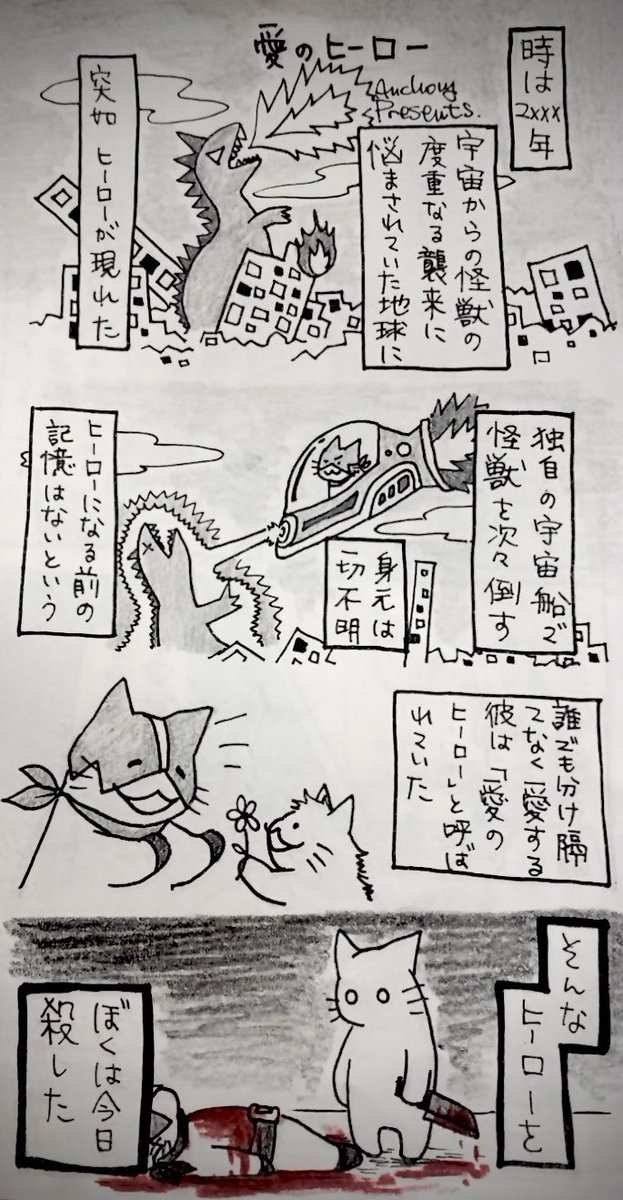 愛のヒーロー
Anchovy
Presents.
時は
2xxx年
宇宙からの怪獣の
度重なる襲来に
悩まされていた地球に
突如 ヒーローが現れた
独自の宇宙船で
怪獣を次々倒す
身元は
一切不明
ヒーローになる前の
記憶はないという
誰でも分け隔
てなく愛する
彼は「愛の
ヒーロー」と呼ば
れていた
そんな
ヒーローを
ぼくは今日
殺した